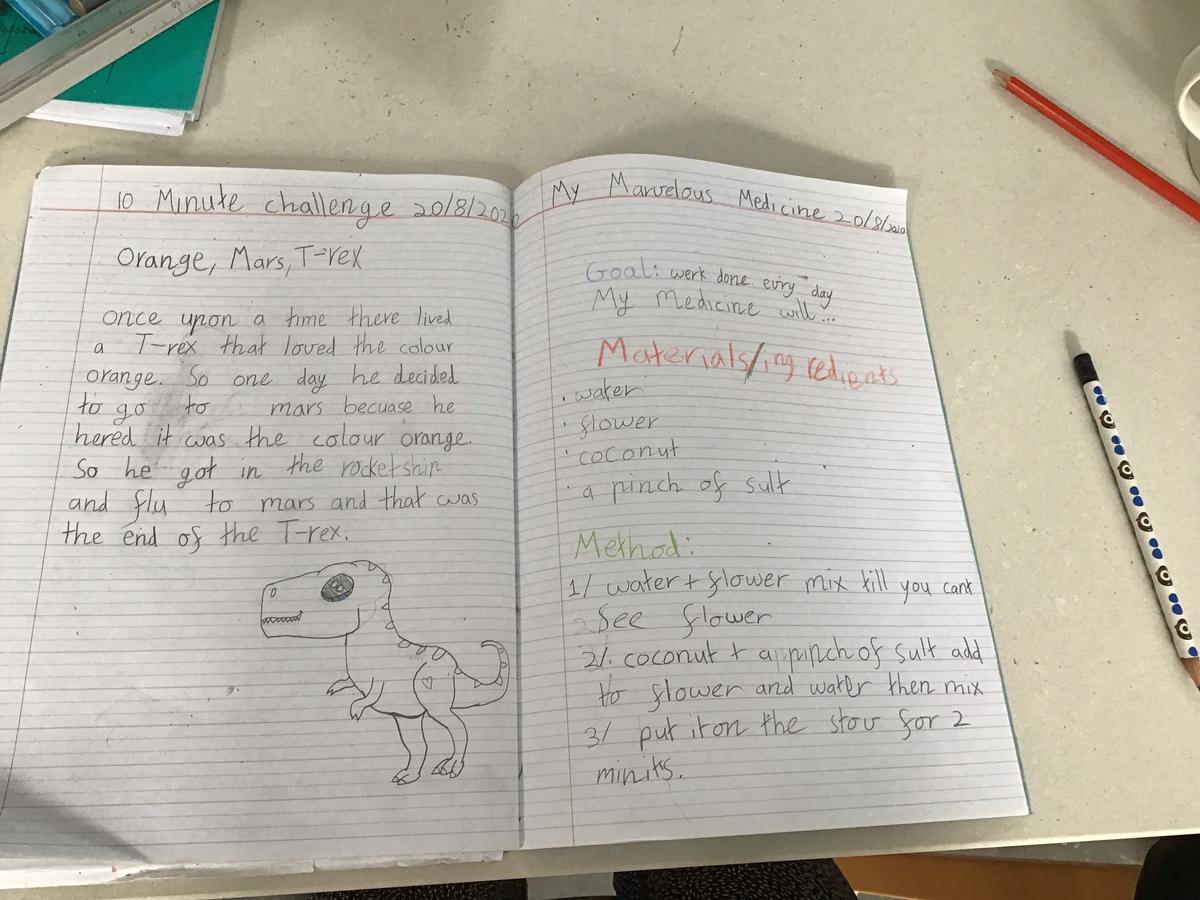 10 Minute challenge 20/8/2020
Orange, Mars, T-rex
Once upon a time there lived
a T-rex that loved the colour
orange. So one day he decided
to go to mars becuase he
hered it was the colour orange.
So he got in the rocketship
and flu to mars and that was
the end of the T-rex.
My Marvelous Medicine 20/8/2020
Goal: werk done evry day
My Medicine will...
Materials/ingredients
· water
· flower
· coconut
· a pinch of sult
Method:
1/ water + flower mix till you cant
See flower
2/. coconut + a pinch of sult add
to flower and water then mix
3/ put it on the stov for 2
minits.